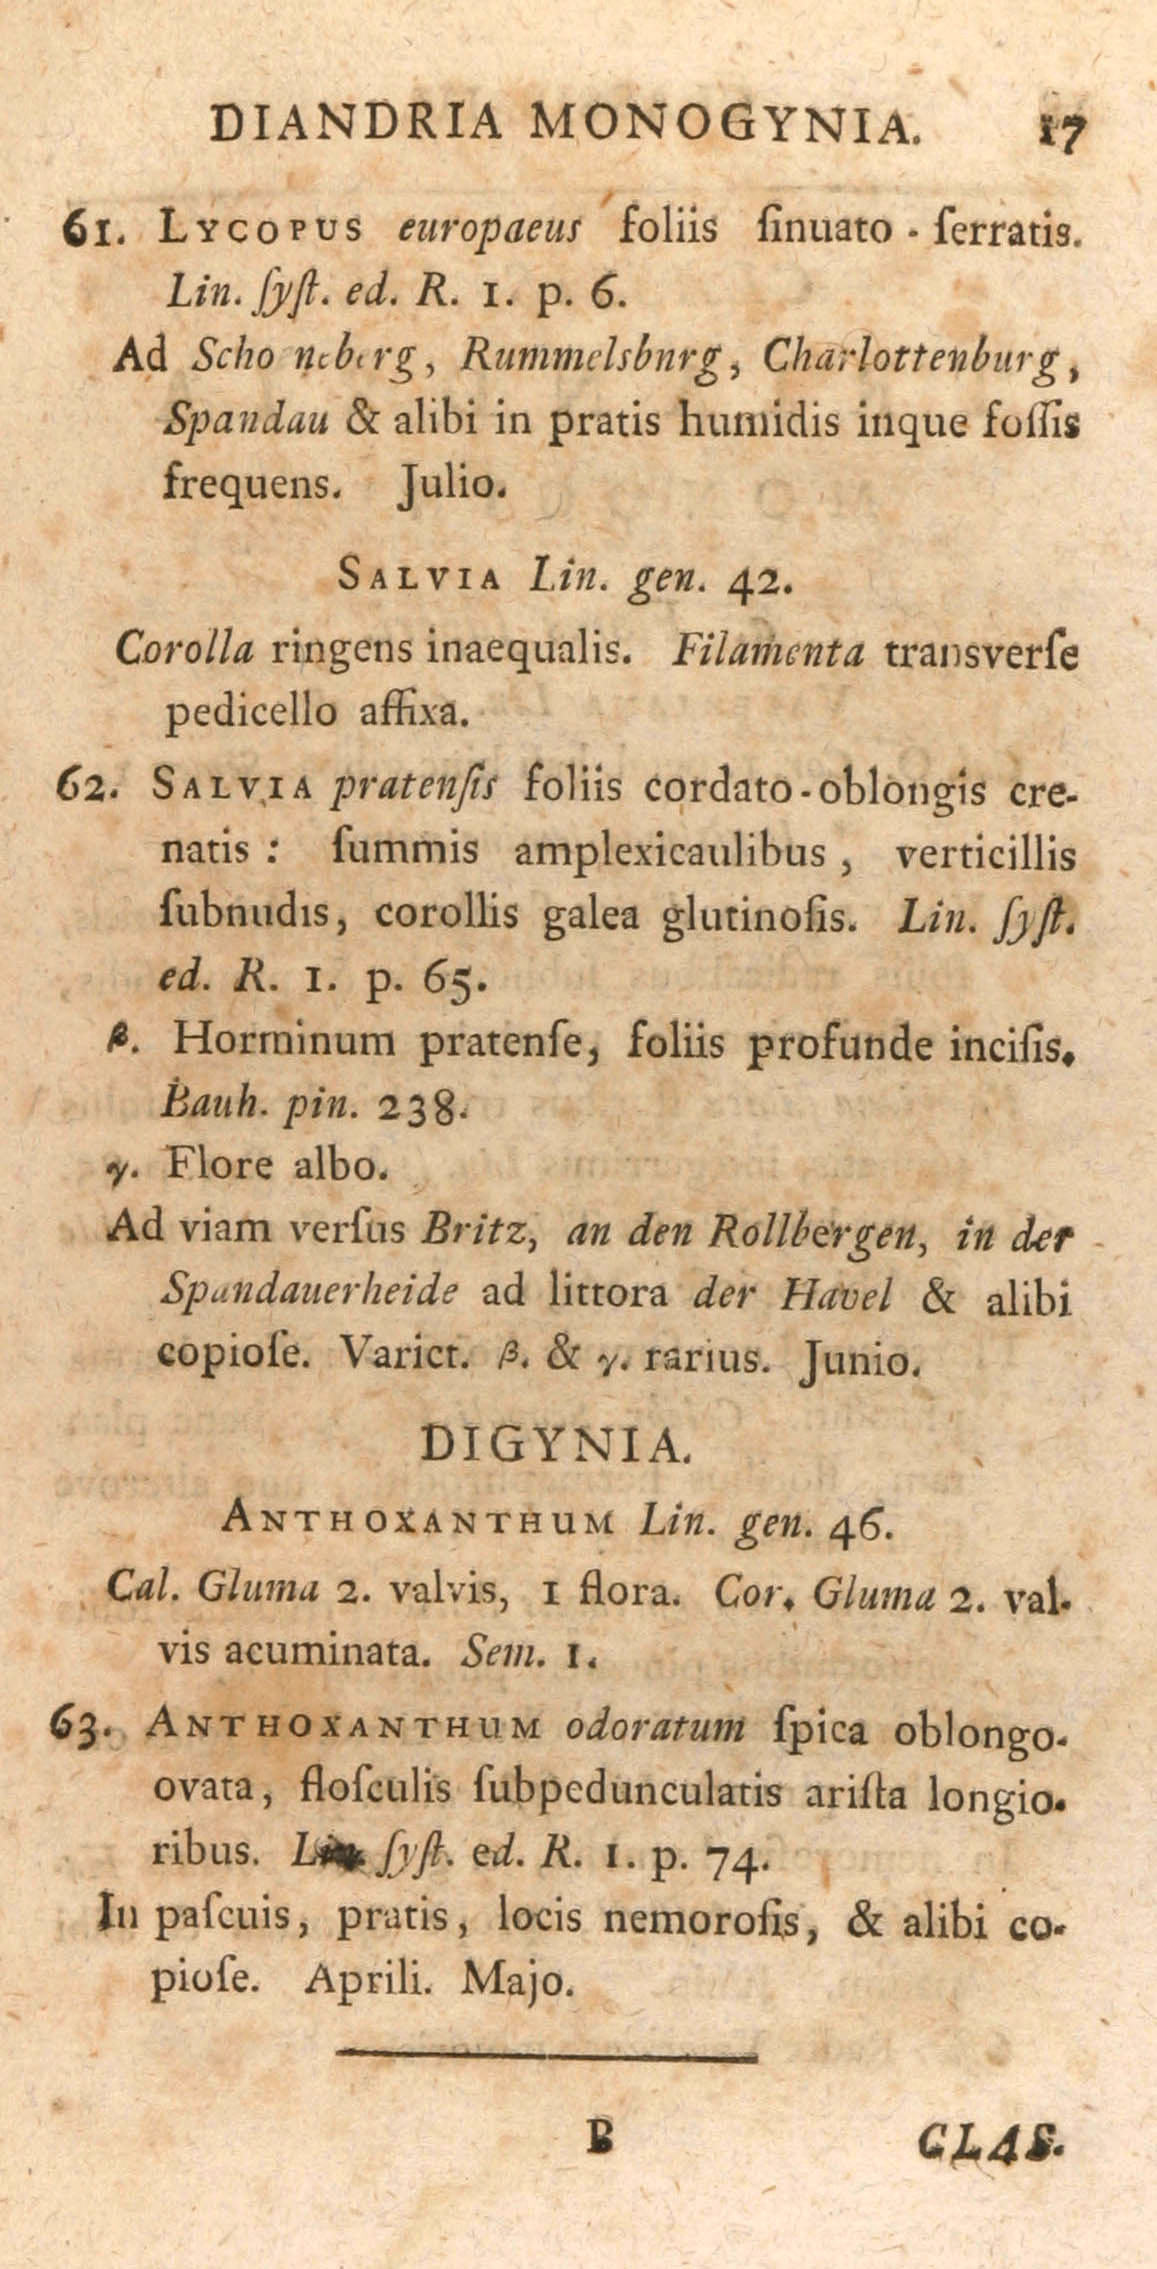 DIANDRIA MONOGYNIA. 17
61. LYCOPUS europaeus foliis ſinuato - ſerratis.
Lin. ſyſt. ed. R. 1. p. 6.
Ad Scho neberg, Rummelsbnrg, Charlottenburg,
Spandau & alibi in pratis humidis inque foſſis
frequens. Julio.
SALVIA Lin. gen. 42.
Corolla ringens inaequalis. Filamenta transverſe
pedicello affixa.
62. SALVIA pratenſis foliis cordato-oblongis cre-
natis: ſummis amplexicaulibus, verticillis
ſubnudis, corollis galea glutinoſis. Lin. ſyſt.
ed. R. 1. p. 65.
β. Horminum pratenſe, foliis profunde inciſis.
Bauh. pin. 238.
γ. Flore albo.
Ad viam verſus Britz, an den Rollbergen, in der
Spandauerheide ad littora der Havel & alibi
copioſe. Variet. β. & γ. rarius. Junio.
DIGYNIA.
ANTHOXANTHUM Lin. gen. 46.
Cal. Gluma 2. valvis, 1 flora. Cor. Gluma 2. val-
vis acuminata. Sem. 1.
63. ANTHOXANTHUM odoratum ſpica oblongo-
ovata, floſculis ſubpedunculatis ariſta longio-
ribus. Lin. ſyſt. ed. R. 1. p. 74.
In paſcuis, pratis, locis nemoroſis, & alibi co-
pioſe. Aprili. Majo.
B CLAS.